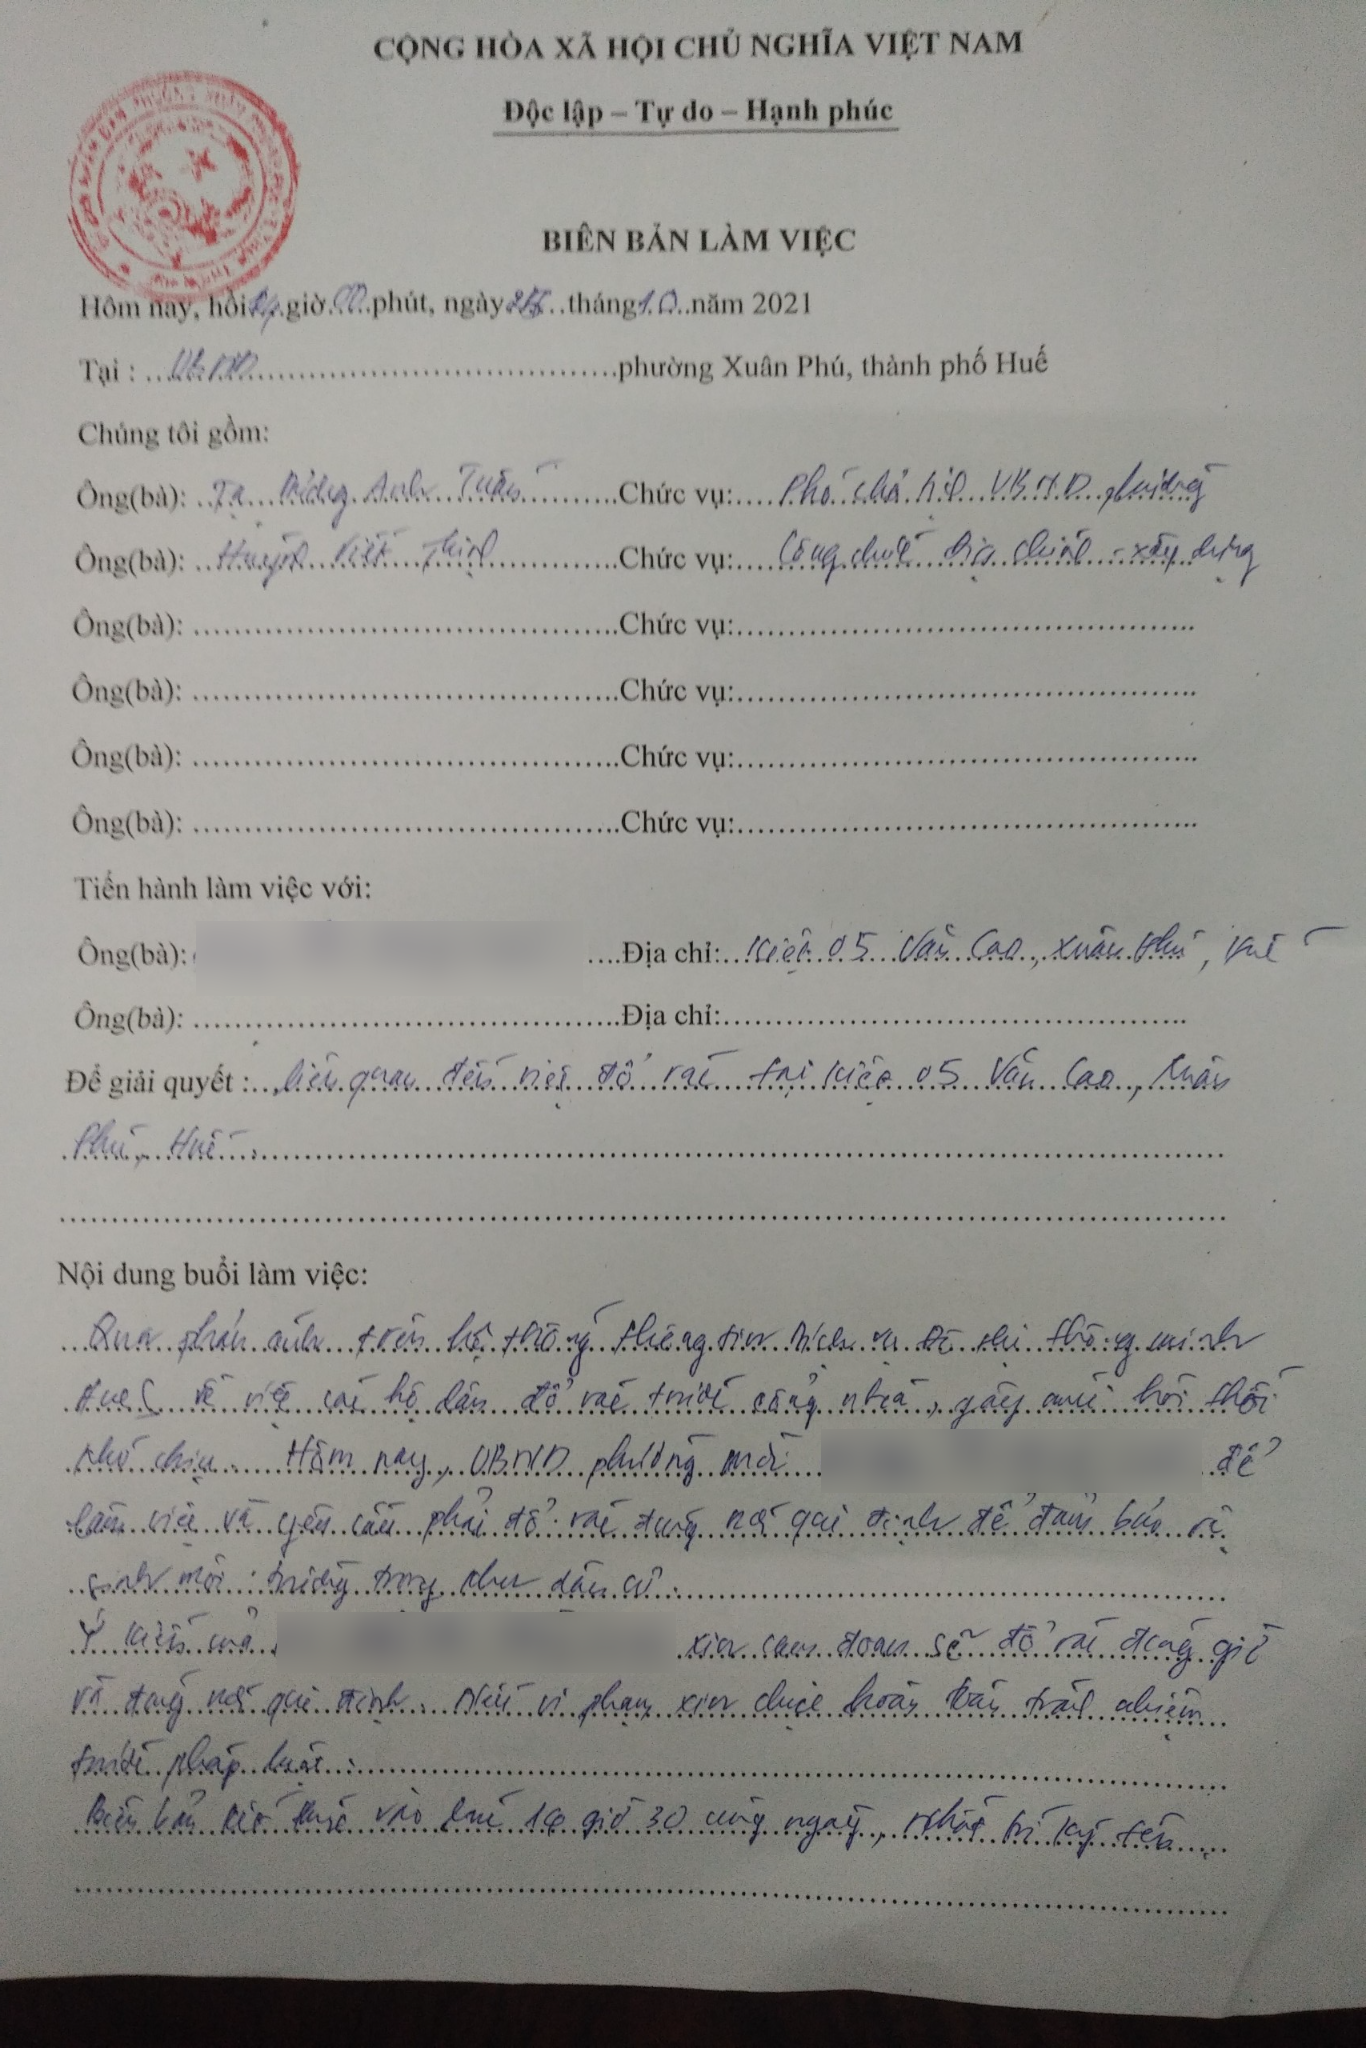 CỘNG HÒA XÃ HỘI CHỦ NGHĨA VIỆT NAM
Độc lập – Tự do – Hạnh phúc
BIÊN BẢN LÀM VIỆC
Hôm nay, hồi giờ 00 phút, ngày tháng 10 năm 2021
Tại : UBND phường Xuân Phú, thành phố Huế
Chúng tôi gồm:
Ông(bà): Tạ Anh Tuấn Chức vụ: Phó chủ tịch UBND phường
Ông(bà): Huỳnh Viết Thịnh Chức vụ: Công chức địa chính - xây dựng
Ông(bà): Chức vụ:
Ông(bà): Chức vụ:
Ông(bà): Chức vụ:
Ông(bà): Chức vụ:
Tiến hành làm việc với:
Ông(bà): Địa chỉ: Kiệt 05 Văn Cao, Xuân Phú, Huế
Ông(bà): Địa chỉ:
Để giải quyết : liên quan đến việc đổ rác tại kiệt 05 Văn Cao, Xuân
Phú, Huế.
Nội dung buổi làm việc:
Qua phản ánh trên hệ thống thông tin Dịch vụ Đô thị thông minh
HueS về việc các hộ dân đổ rác trước cổng nhà, gây mùi hôi thối
khó chịu. Hôm nay, UBND phường mời để
làm việc và yêu cầu phải đổ rác đúng nơi qui định để đảm bảo vệ
sinh môi trường trong khu dân cư.
Ý kiến của xin cam đoan sẽ đổ rác đúng giờ
và đúng nơi qui định. Nếu vi phạm xin chịu hoàn toàn trách nhiệm
trước pháp luật.
Biên bản kết thúc vào lúc giờ 30 cùng ngày, nhất trí ký tên.